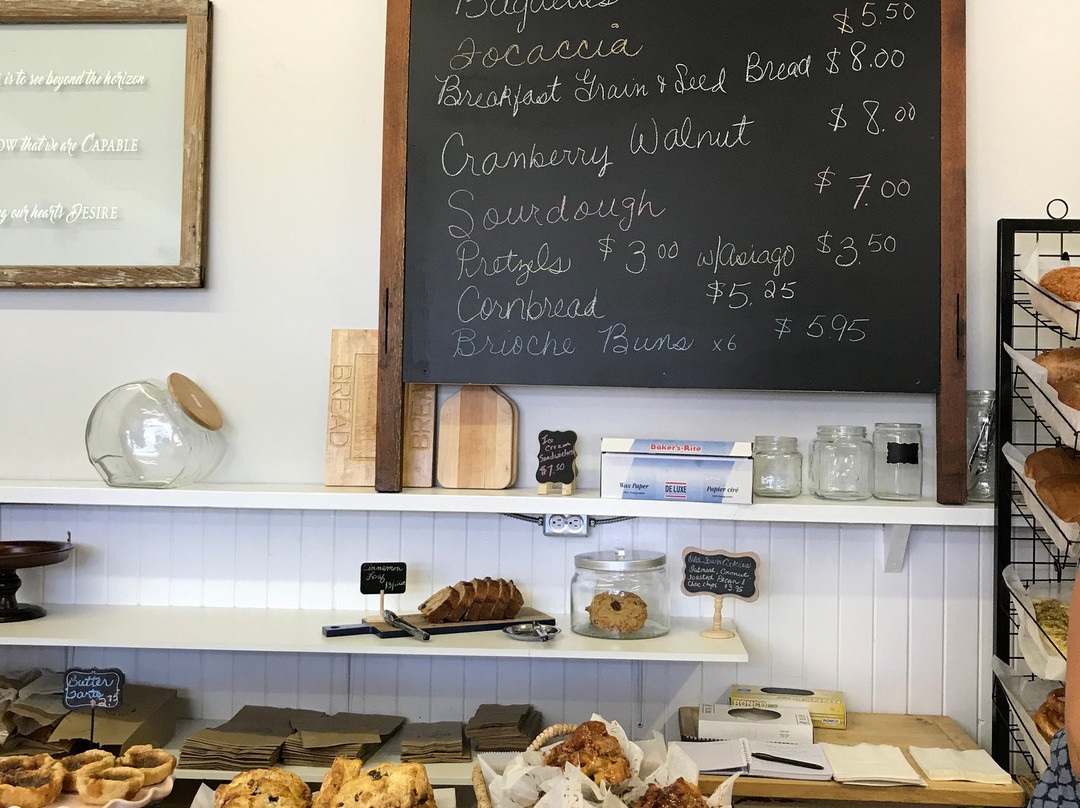 is to see beyond the horizon
OW that we are CAPABLE
g our hearts DESIRE
Baguettes $5.50
Focaccia
Breakfast Grain & Seed Bread $8.00
Cranberry Walnut $8.00
Sourdough $7.00
Pretzels $3.00 w/Asiago $3.50
Cornbread $5.25
Brioche Buns x6 $5.95
BREAD
BREAD
Ice
Cream
Sandwiches
$7.50
Baker's-Rite
Wax Paper DE LUXE Papier ciré
Cinnamon
Loaf
Old Town Cookies
Oatmeal, Coconut
Toasted Pecan &
Choc chips
Butter
Tarts
2.75
RONCO